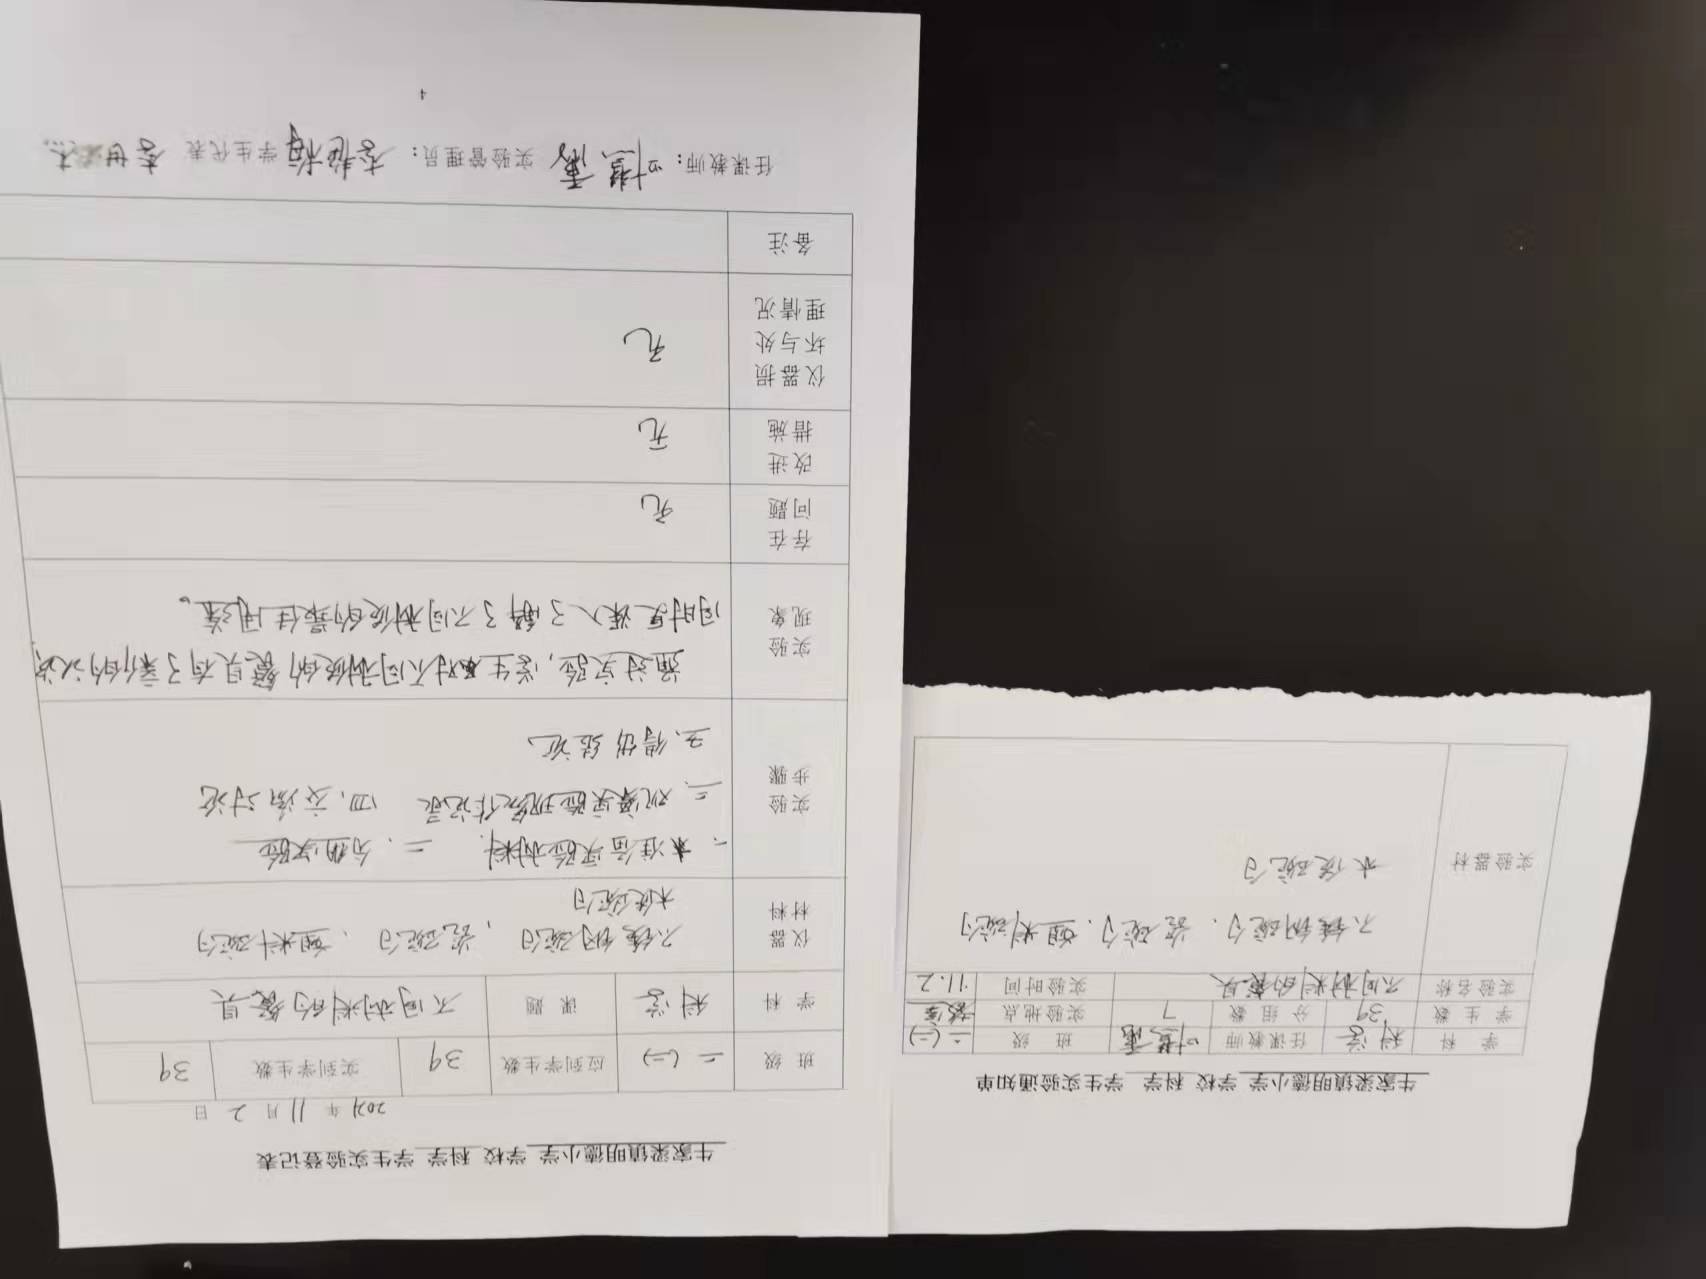 牛家梁镇明德小学 学校 科学 学生实验通知单
学 科 科学 任课教师 班 级 二(二)
学生数 39 分组数 7 实验地点 教室
实验名称 不同材料的餐具 实验时间 11.2
实验器材 不锈钢碗勺.瓷碗勺.塑料碗勺
木筷碗勺
牛家梁镇明德小学 学校 科学 学生实验登记表
2021 年 11 月 2 日
班 级 二(二) 应到学生数 39 实到学生数 39
学 科 科学 课 题 不同材料的餐具
仪器材料 不锈钢碗勺,瓷碗勺、塑料碗勺
木筷碗勺
实验步骤 一、准备实验材料. 二.分组实验
三.观察实验现象作记录 四,交流讨论
五、得出结论
实验现象 通过实验,学生对不同材质的餐具有了新的认识
同时更深入了解了不同材质的最佳用途。
存在问题 无
改进措施 无
仪器损坏与处理情况 无
备注
任课教师: 实验管理员: 学生代表